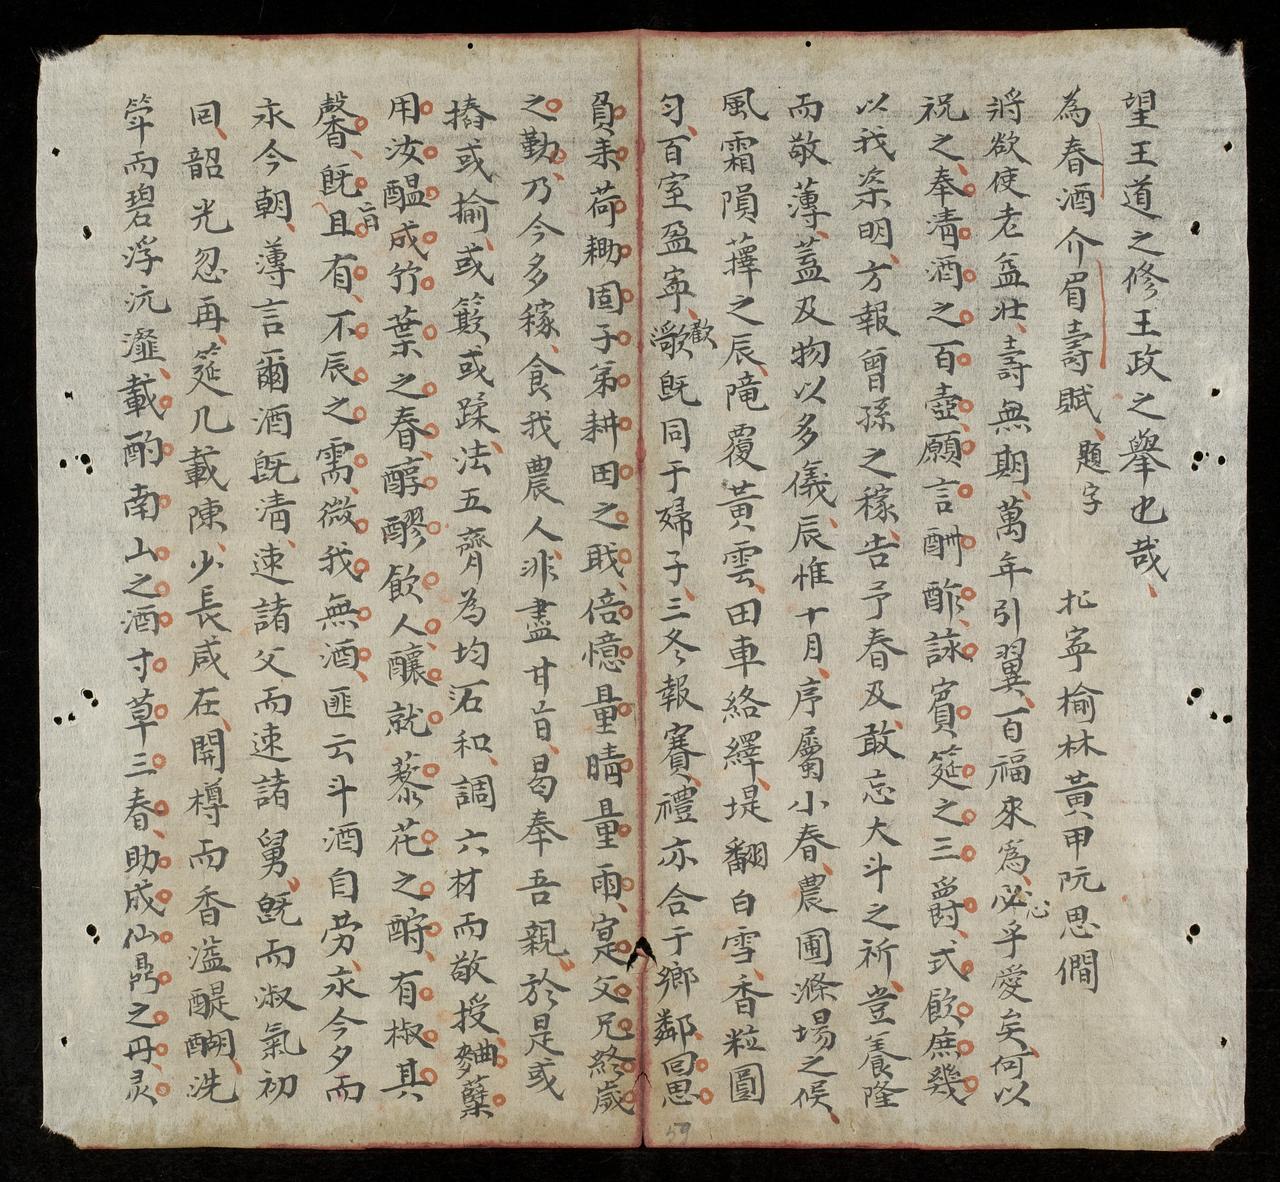 望王道之修王政之舉也哉
為春酒介眉壽賦 題字 扡寧榆林黃甲阮思僩
將欲使老益壯壽無期萬年引翼百福來為必乎愛矣何以
祝之奉清酒之百壺願言酬酢詠賓筵之三爵式飲庶幾
以我粢明方報曾孫之稼告予春及敢忘大斗之祈豈養隆
而敬薄蓋及物以多儀辰惟十月序屬小春農圃滌場之候
風霜隕蘀之辰隴覆黃雲田車絡繹堤翻白雪香粒圓
勻百室盈寧歡歌既同于婦子三冬報賽禮亦合于鄉鄰回思
負耒荷耡固子弟耕田之戢倍憶量晴量雨寔父兄終歲
之勤乃今多稼食我農人非盡甘旨曷奉吾親於是或
摏或揄或簸或蹂法五齊為均沰和調六材而敬授麯糵
用汝醖成竹葉之春醇醪飲人釀就蔾花之酹有椒其
馨既旨且有不辰之需微我無酒匪云斗酒自勞永今夕而
永今朝薄言爾酒既清速諸父而速諸舅既而淑氣初
回韶光忽再筵几載陳少長咸在開樽而香溢醍醐洗
斝而碧浮沆瀣載酌南山之酒寸草三春助成仙鼎之丹灵